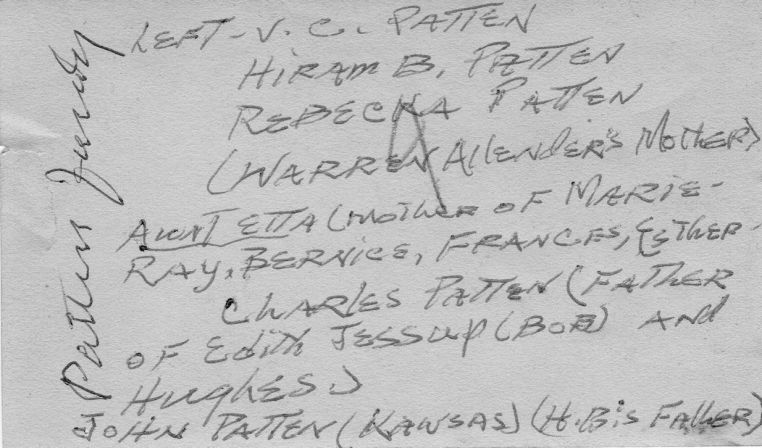 Patten Family
LEFT - V. C. PATTEN
HIRAM B. PATTEN
REBECKA PATTEN
(WARREN Allender's MOTHER)
AUNT ETTA (MOTHER OF MARIE -
RAY, BERNICE, FRANCES, ESTHER -
CHARLES PATTEN (FATHER
OF Edith JESSUP (BOB) AND
HUGHES)
JOHN PATTEN (KANSAS) (H.B.'s FATHER)